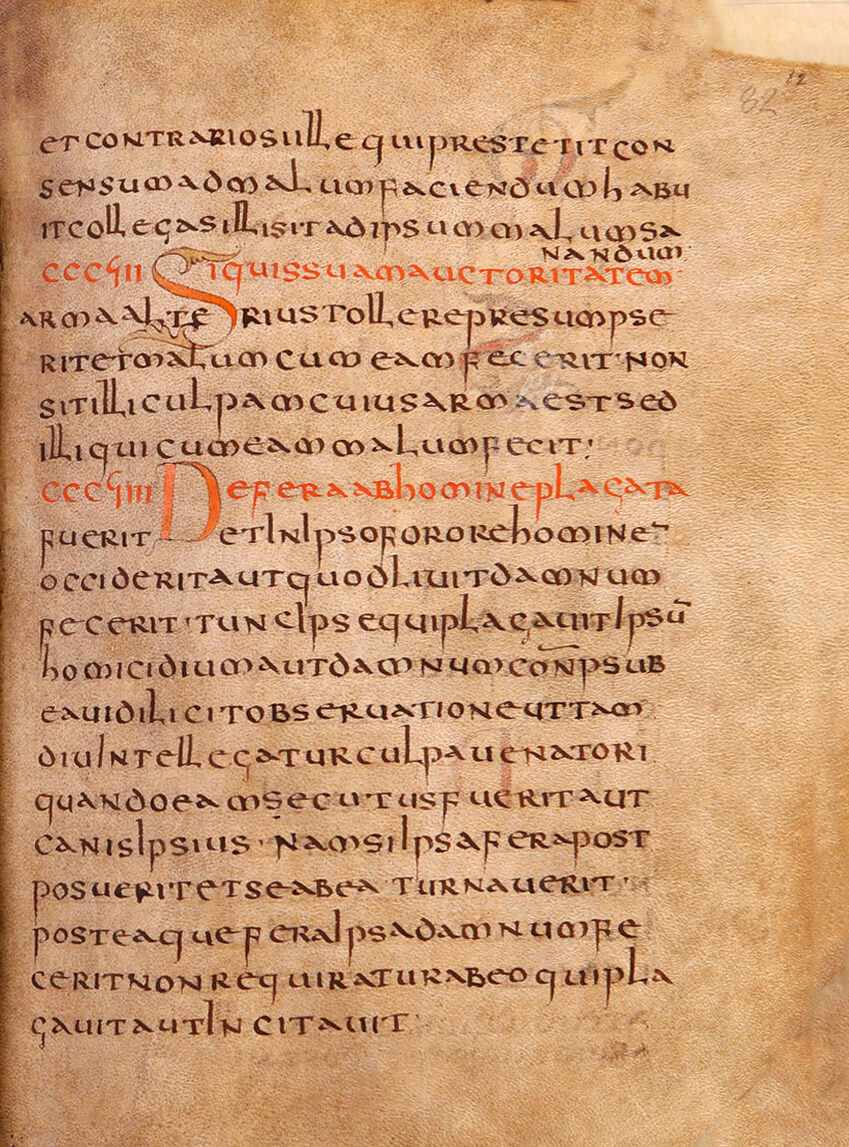 et contrario sille qui prestetit con
sensum ad malum faciendum habu
it collegas illi sit ad ipsum malum sa
nandum
cccϛii Si quis suam auctoritatem
arma alterius tollere presumpse
rit et malum cum eam fecerit · non
sit illi culpam cuius arma est sed
illi qui cum eam malum fecit :
cccϛiii De fera ab homine plagata
fuerit et in ipso forore homine
occiderit aut quodliuit damnum
fecerit · tunc ipse qui plagauit ipsū
homicidium aut damnum con̄psub
ea uidilicit obseruatione ut tam
diu intellegatur culpa uenatori
quandoeam secutus fuerit aut
canis ipsius · nam si ipsa fera post
posuerit et se ab ea turnauerit ·
postea que fera ipsa damnum fe
cerit non requiratur ab eo qui pla
gauit aut incitauit ·
82